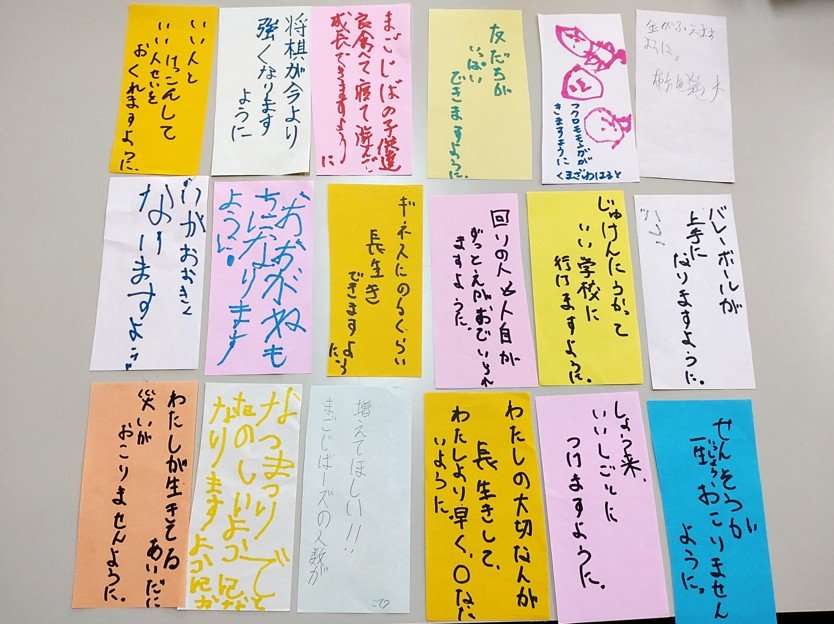 いい人と
けっこんして
いい人せいを
おくれますように
将棋が今より
強くなります
ように
まごじばの子供達
食べて寝て遊んで
成長できますように
友だちが
いっぱい
できますように。
フクロモモンガが
きますように
くまざわはると
金がふえます
ように。
おおきく
なりますよう
おおがねも
ちになります
ように!
ギネスにのるくらい
長生き
できますよう
に。
回りの人や人自が
ずっとえがおでいられ
ますように。
じゅけんにうかって
いい学校に
行けますように。
バレーボールが
上手に
なりますように。
わたしが生きてる
あいだに
災いが
おこりませんように。
なつまつりで
たのしいよ
なりますように
増えてほしい!!
まごじばーズの人数が
わたしの大切なんが
長生きして、
わたしより早く、〇な
いように。
しょう来、
いいしごとに
つけますように。
せんそうが
一生おこりません
ように。